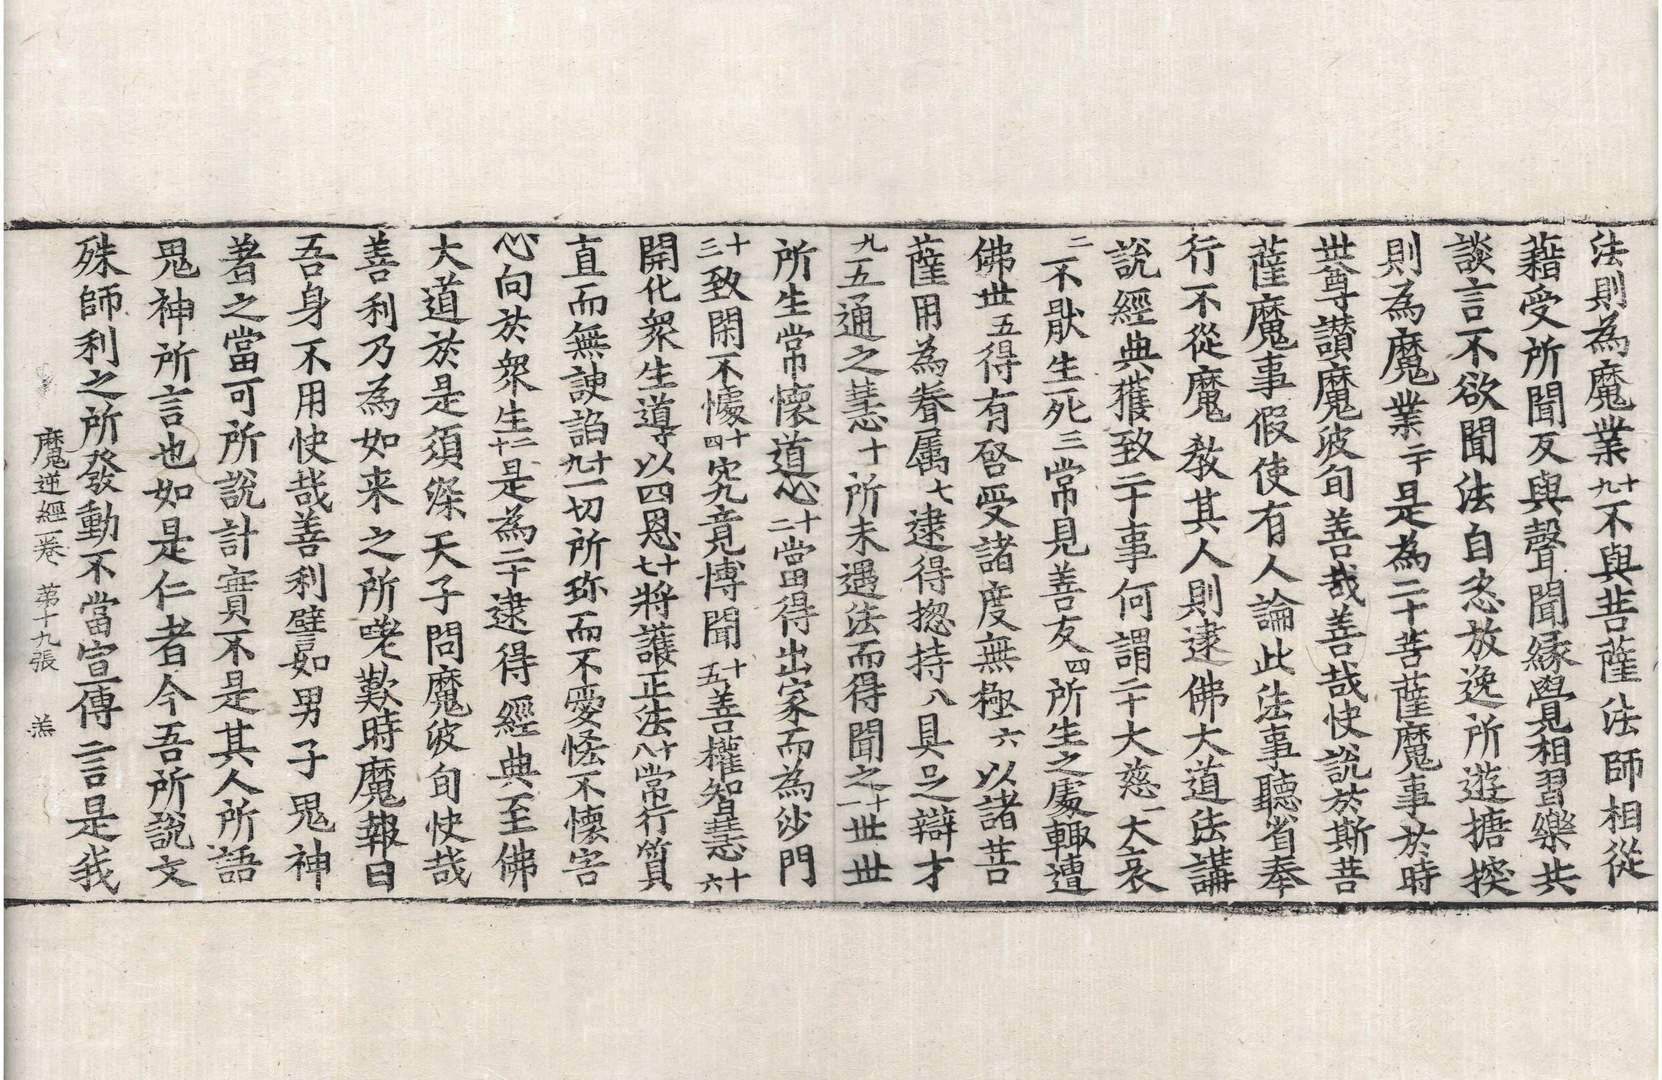 法則為魔業十九不與菩薩法師相從
藉受所聞反與聲聞緣覺相習樂共
談言不欲聞法自恣放逸所遊搪揬
則為魔業二十是為二十菩薩魔事於時
世尊讃魔波旬善哉善哉快說於斯菩
薩魔事假使有人論此法事聽省奉
行不從魔教其人則逮佛大道法講
說經典獲致二十事何謂二十大慈一大哀
二不猒生死三常見善友四所生之處輙遭
佛世五得有啓受諸度無極六以諸菩
薩用為眷属七逮得揔持八具足辯才
九五通之慧十所未遇法而得聞之十一世世
所生常懷道心十二當得出家而為沙門
十三致閑不懅十四究竟博聞十五善權智慧十六
開化衆生導以四恩十七將護正法十八常行質
直而無諛諂十九一切所珎而不愛恡不懷害
心向於衆生二十是為二十逮得經典至佛
大道於是須深天子問魔波旬快哉
善利乃為如来之所咾歎時魔報曰
吾身不用快哉善利譬如男子鬼神
著之當可所說計實不是其人所語
鬼神所言也如是仁者今吾所說文
殊師利之所發動不當宣傳二言是我
魔逆經一卷 第十九張 羔